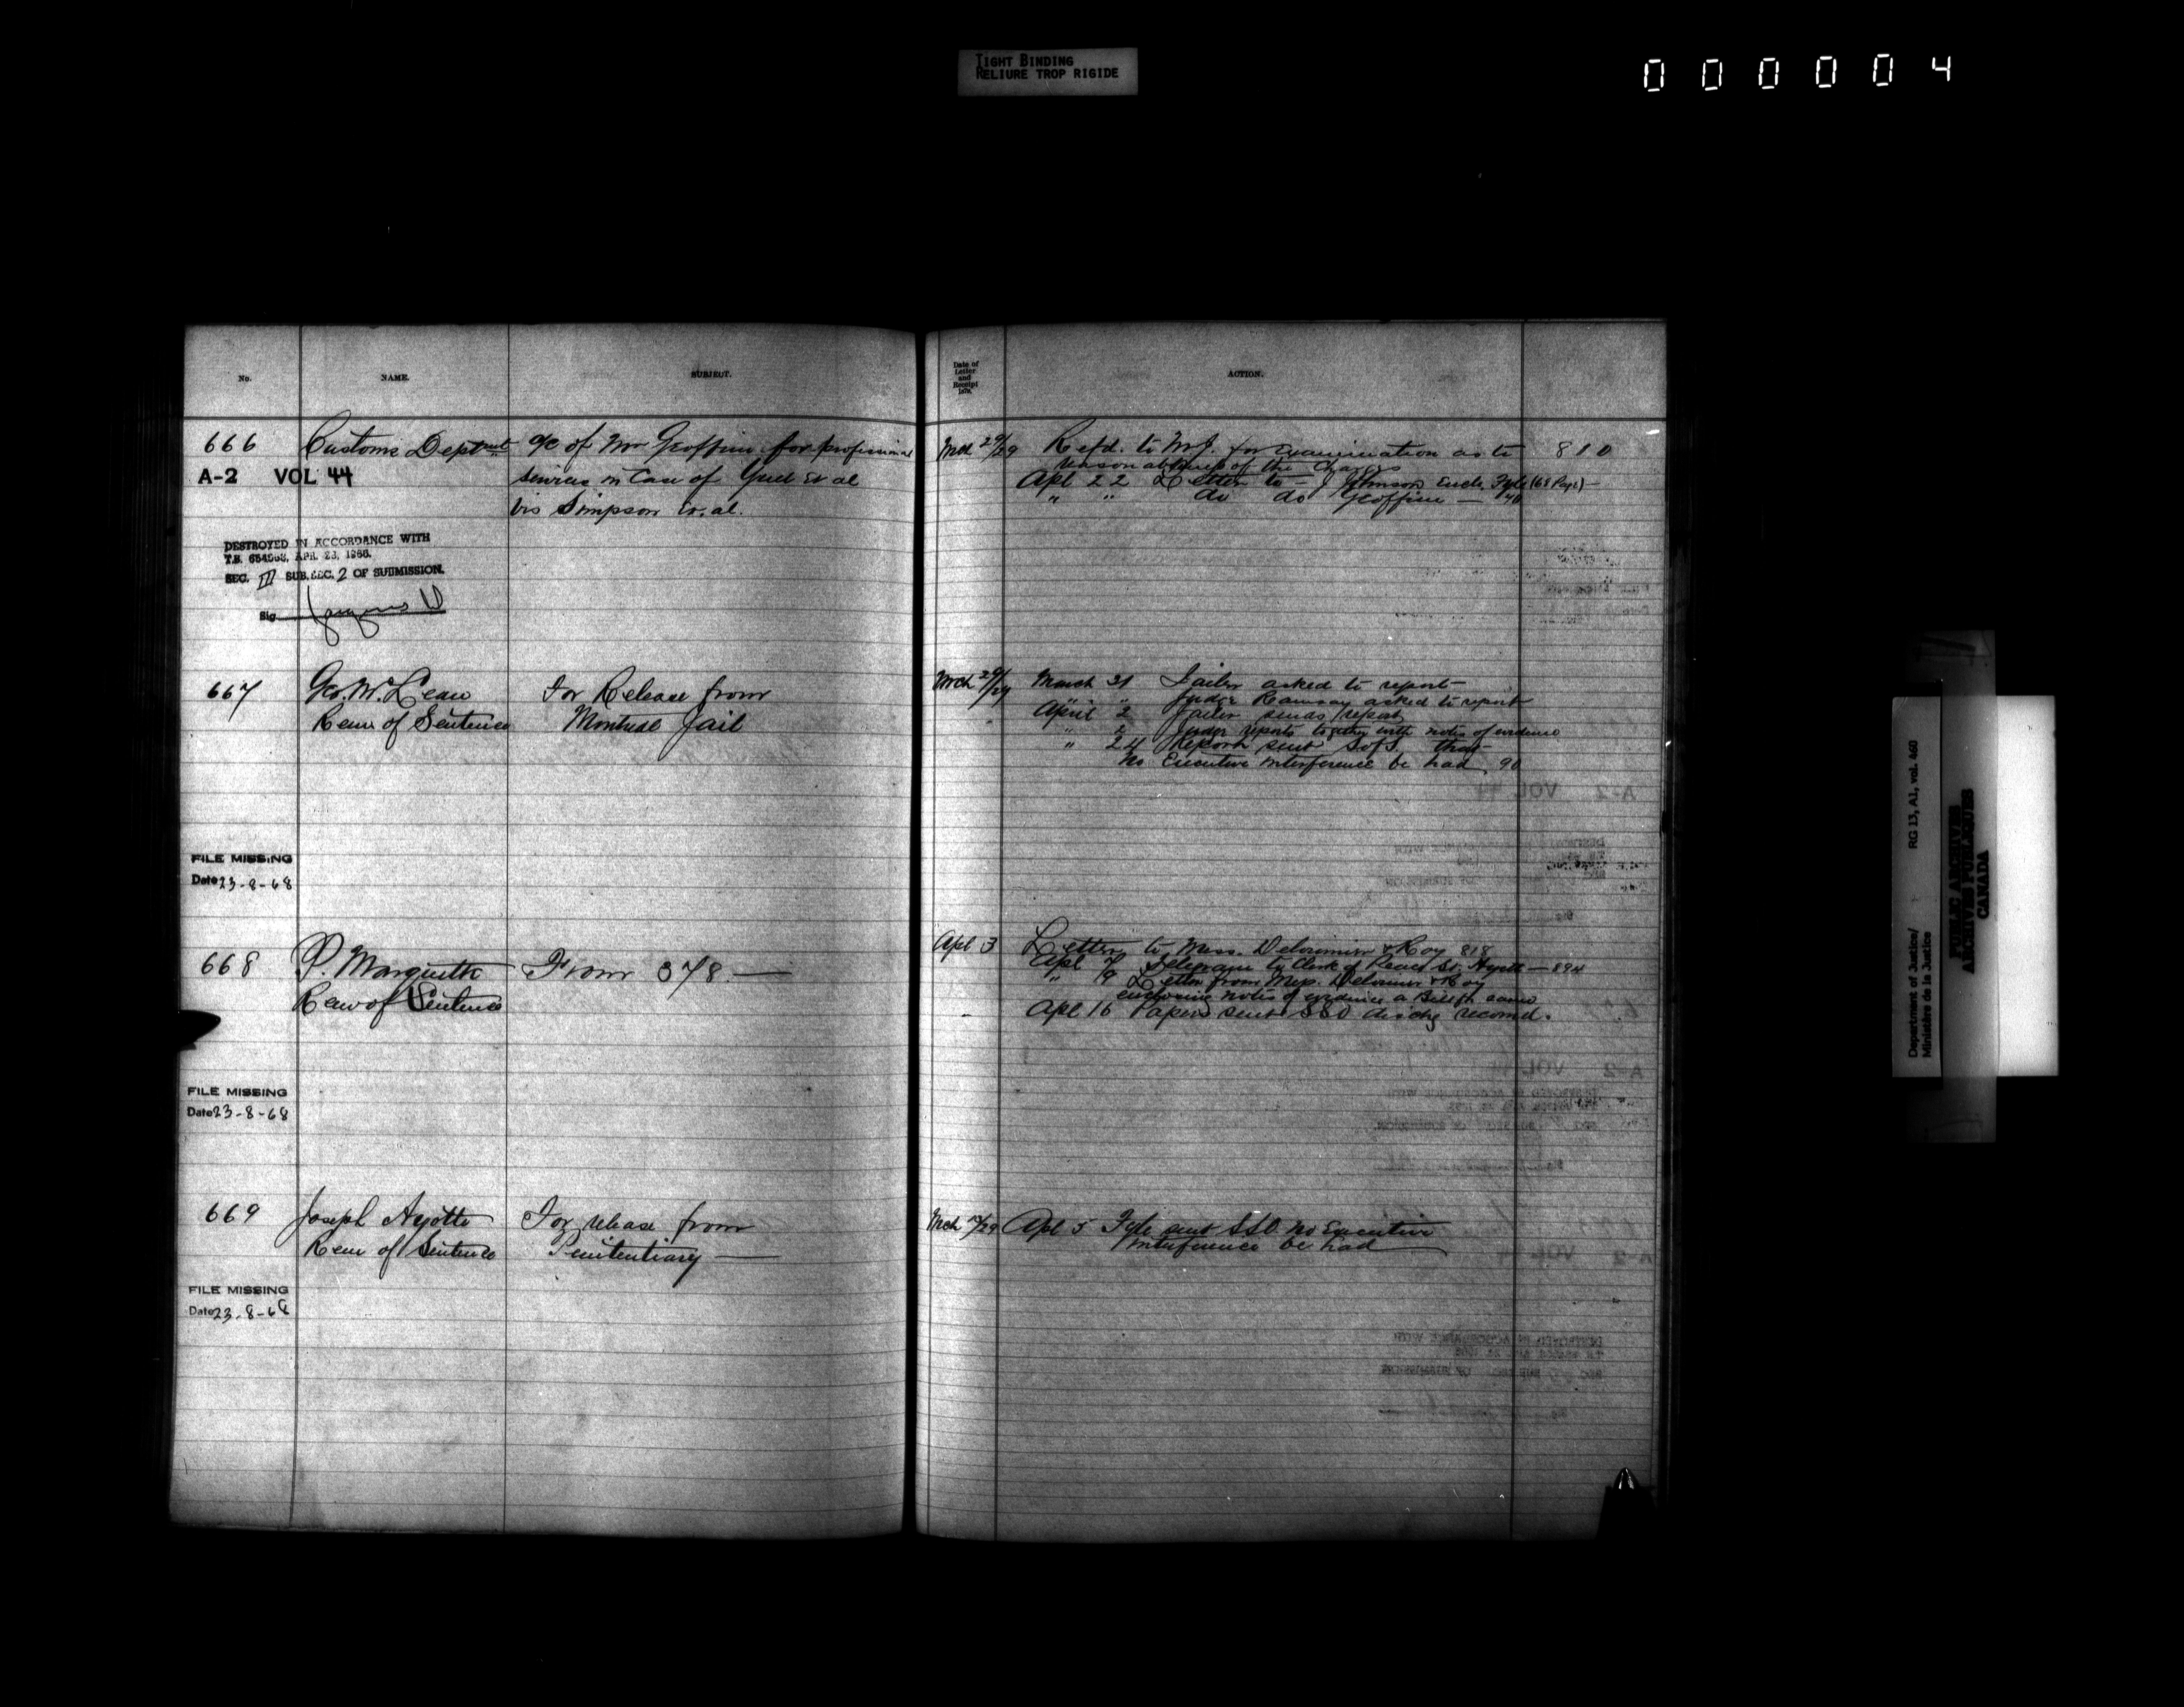 TIGHT BINDING
RELIURE TROP RIGIDE
000004
No.
NAME.
SUBJECT.
Date of
Letter
and
Receipt
ACTION.
666
Customs Deptmt
a/c of Mr Geoffrion for professional
services in Case of et al
vs Simpson et. al.
A-2 VOL 44
DESTROYED IN ACCORDANCE WITH
T.B. APR. 23, 1966.
SEC. III SUB.SEC. 2 OF SUBMISSION.
Sig
Mch 29/29
Refd. to M.J. for Examination as to 810
reasonableness of the Charges
Apl 22 Letter to — J Johnson Encl. Fyle (68 Page) —
" " do do Geoffrion — 40
667
Geo. W. Lean
Rem of Sentence
For Release from
Montreal Jail
Mch 29/29
March 31 Jailer asked to report —
" " Judge Ramsay asked to report
April 2 Jailer sends report
" Judge reports together with notes of evidence
" 24 Report sent SofS. that
no Executive interference be had 90
FILE MISSING
Date 23-8-68
668
P. Marquette
Rem of Sentence
From 378 —
Apl 3
Letter to Mess. Delorimier & Roy 818
Apl 7 Telegram to Clerk of Peace St. — 894
" 9 Letter from Mess. Delorimier & Roy
enclosing notes of evidence a
Apl 16 Papers sent SSO dischg recomd.
FILE MISSING
Date 23-8-68
669
Joseph Ayotte
Rem of Sentence
For release from
Penitentiary —
Mch /29
Apl 5 Fyle sent SSO no Executive
interference be had
FILE MISSING
Date 23-8-68
Department of Justice/
Ministère de la Justice
RG 13, A1, vol. 460
PUBLIC ARCHIVES
ARCHIVES PUBLIQUES
CANADA